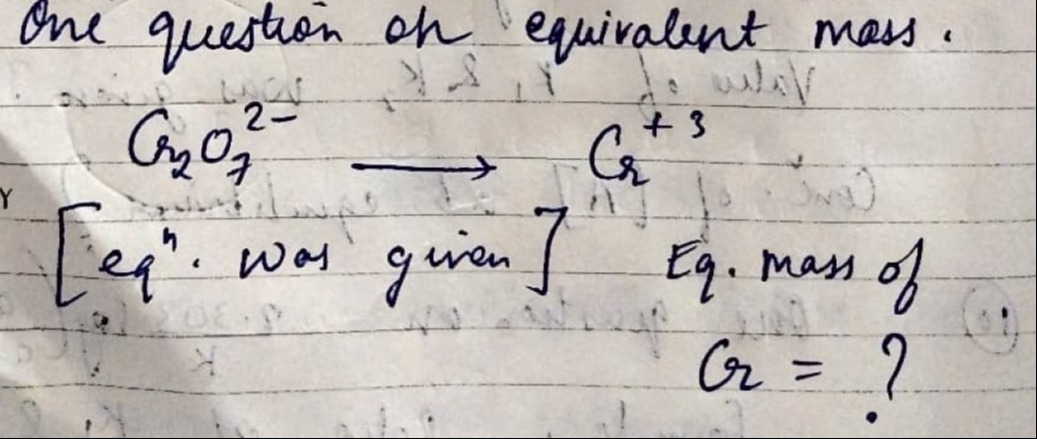 One question on equivalent mass.
Cr₂O₇²⁻ ⟶ Cr⁺³
[eqⁿ. was given] Eq. mass of
Cr = ?